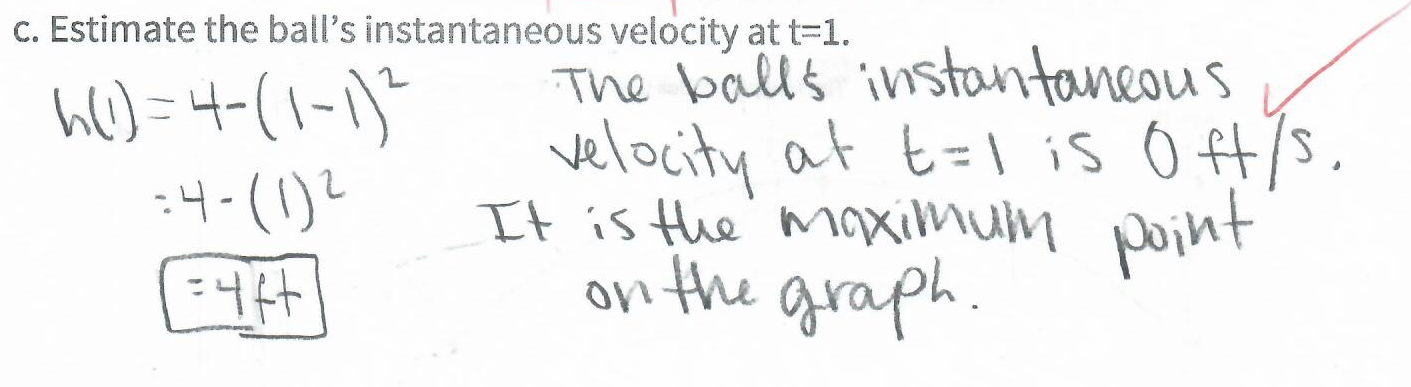 c. Estimate the ball's instantaneous velocity at t=1.
h(1) = 4-(1-1)²
= 4-(1)²
= 4 ft
The ball's instantaneous
velocity at t=1 is 0 ft/s.
It is the maximum point
on the graph.